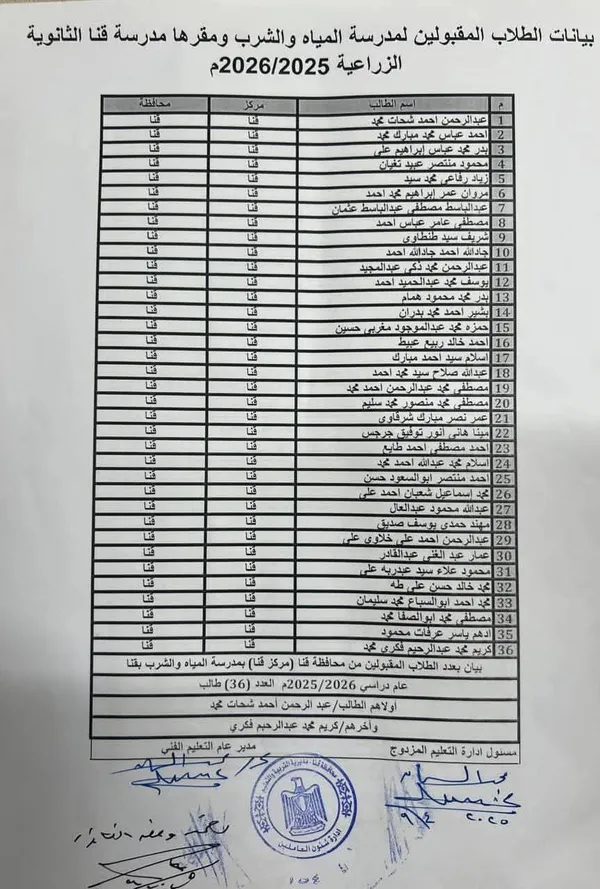 بيانات الطلاب المقبولين لمدرسة المياه والشرب ومقرها مدرسة قنا الثانوية
الزراعية 2026/2025م
م اسم الطالب مركز محافظة
1 عبدالرحمن احمد شحات محمد قنا قنا
2 احمد عباس محمد مبارك محمد قنا قنا
3 بدر محمد عباس إبراهيم على قنا قنا
4 محمود منتصر عبيد تغيان قنا قنا
5 زياد رفاعى محمد سيد قنا قنا
6 مروان عمر إبراهيم محمد احمد قنا قنا
7 عبدالباسط مصطفى عبدالباسط عثمان قنا قنا
8 مصطفى عامر عباس احمد قنا قنا
9 شريف سيد طنطاوى قنا قنا
10 جادالله احمد جادالله احمد قنا قنا
11 عبدالرحمن محمد ذكى عبدالمجيد قنا قنا
12 يوسف محمد عبدالحميد احمد قنا قنا
13 بدر محمد محمود همام قنا قنا
14 بشير احمد محمد بدران قنا قنا
15 حمزه محمد عبدالموجود مغربى حسين قنا قنا
16 احمد خالد ربيع عبيط قنا قنا
17 اسلام سيد احمد مبارك قنا قنا
18 عبدالله صلاح سيد محمد احمد قنا قنا
19 مصطفى محمد عبدالرحمن احمد محمد قنا قنا
20 مصطفى محمد منصور محمد سليم قنا قنا
21 عمر نصر مبارك شرقاوى قنا قنا
22 مينا هانى انور توفيق جرجس قنا قنا
23 احمد مصطفى احمد طايع قنا قنا
24 اسلام محمد عبدالله احمد محمد قنا قنا
25 احمد منتصر ابوالسعود حسن قنا قنا
26 محمد إسماعيل شعبان احمد على قنا قنا
27 عبدالله محمود عبدالعال قنا قنا
28 مهند حمدى يوسف صديق قنا قنا
29 عبدالرحمن احمد على خلاوى على قنا قنا
30 عمار عبد الغنى عبدالقادر قنا قنا
31 محمود علاء سيد عبدربه على قنا قنا
32 محمد خالد حسن على طه قنا قنا
33 محمد احمد ابوالسباع محمد سليمان قنا قنا
34 مصطفى محمد ابوالصفا محمد قنا قنا
35 ادهم ياسر عرفات محمود قنا قنا
36 كريم محمد عبدالرحيم فكري محمد قنا قنا
بيان بعدد الطلاب المقبولين من محافظة قنا (مركز قنا) بمدرسة المياه والشرب بقنا
عام دراسي 2025/2026م العدد (36) طالب
أولاهم الطالب/عبد الرحمن أحمد شحات محمد
وأخرهم/كريم محمد عبدالرحيم فكري
مسئول ادارة التعليم المزدوج مدير عام التعليم الفني
٢٠٢٥
محافظة قنا مديرية التربية والتعليم
ادارة شئون العاملين